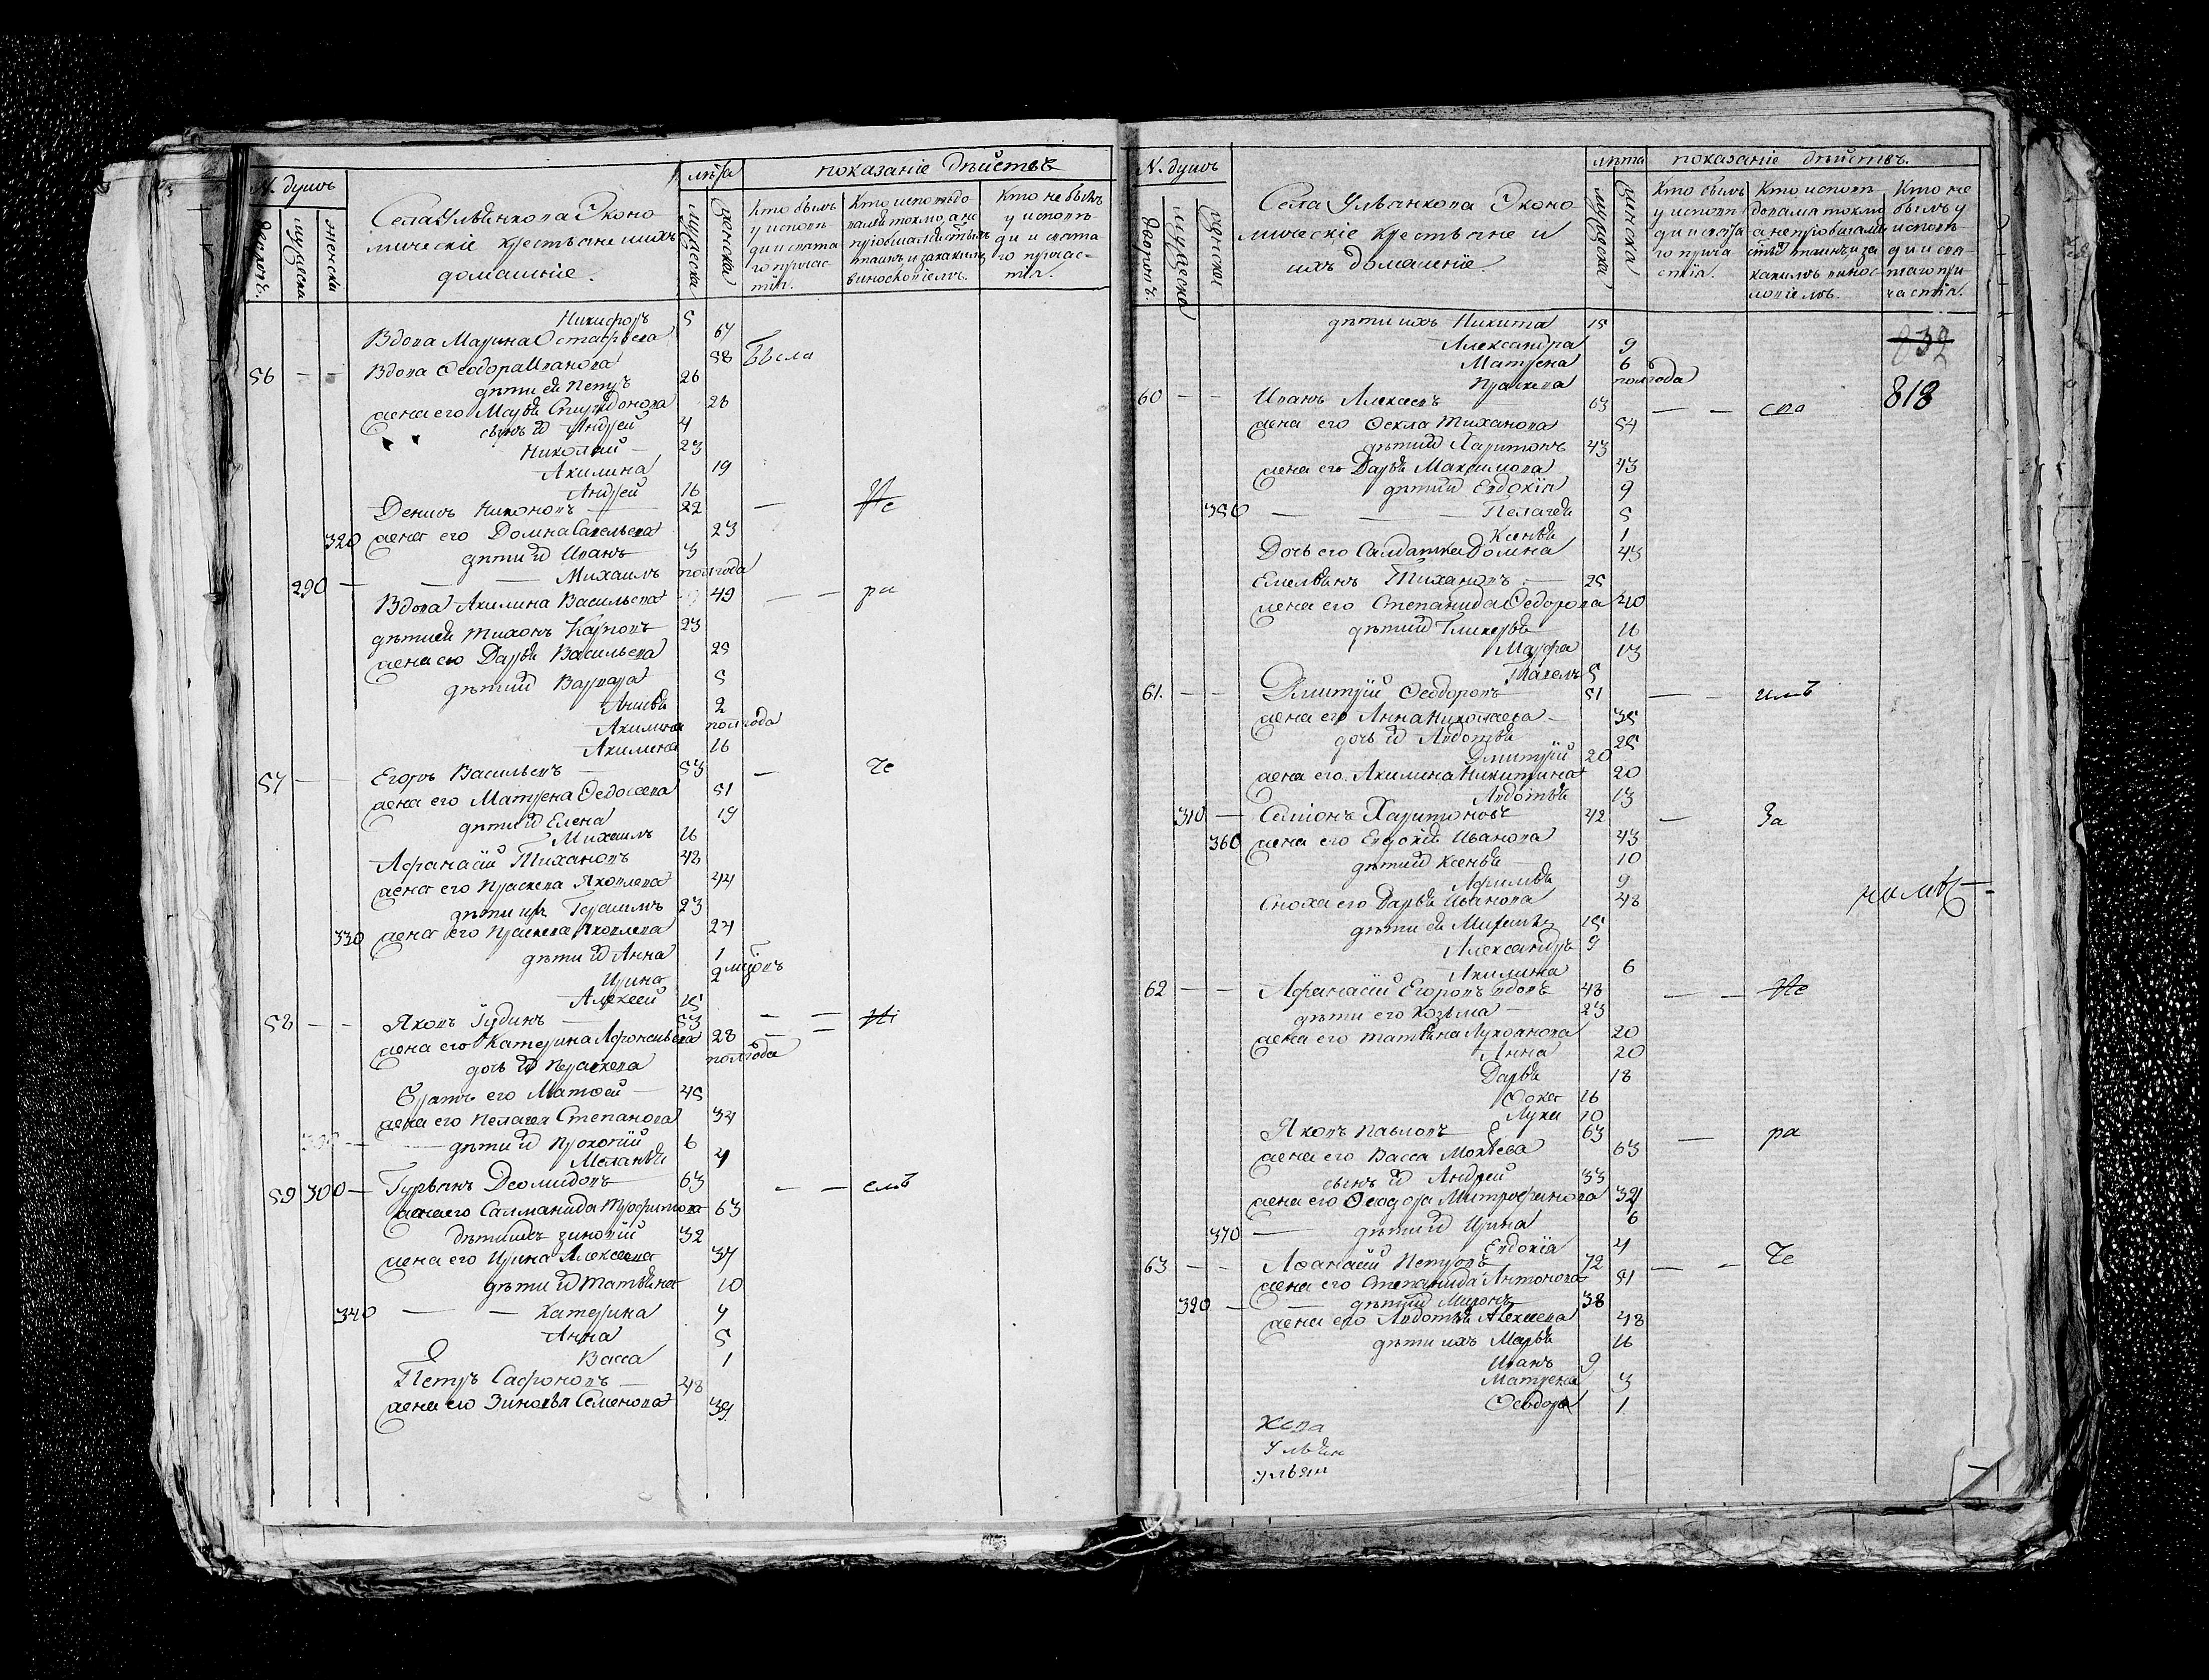 N. душъ
лѣта
показаніе дѣйствъ
дворовъ.
мужеска
женски
Села Ульянкова Эконо
мическіе крестьяне и ихъ
домашніе.
мужеска
женска
Кто былъ
у исповѣ
ди и свята
го причас
тія.
Кто исповѣдо
вался токмо, а не
причащался
и за какимъ
винословіемъ.
Кто не былъ
у исповѣ
ди и свята
го причас=
тія.
Никифоръ 5
Вдова Марина Остафьева 64
56 — — Вдова Ѳеодора Иванова 58 Бысла
дѣти ея Петръ 26
жена его Марья Спиридонова 28
сынъ их Андрей 4
Николай — 23
Акилина 19
Андрей 16
Денисъ Никоновъ — 22 — Не
320 жена его Домна Савельева 23
дѣти их Иванъ 3
290 — — — Михаилъ полгода
Вдова Акилина Васильева 49 — — ра
дѣти ея Тихонъ Карповъ 23
жена его Дарья Васильева 25
дѣти их Варвара 5
Анисья 2
Акилина полгода
Акилина 16
57 — Егоръ Васильевъ — 53 — Че
жена его Матрена Ѳедосеева 51
дѣти их Елена 19
Михаилъ 16
Афанасій Тихановъ 48
жена его Праскева Яковлева 44
дѣти их Герасимъ 23
330 жена его Праскева Яковлева 24
дѣти их Анна 1
Ирина 2
Алексей 15
58 — — Яковъ Гудинъ — 53 — — Не
жена его Катерина Афонасьева 28
дочь их Праскева полгода
Братъ его Матѳей — 45
жена его Пелагея Степанова 34
дѣти их Прокопій 6
Меланья 4
59 300 — Гурьянъ Деомидовъ 63 — — смъ
жена его Саламанида Трофимова 63
дѣти ихъ Зиновій 32
жена его Ирина Алексеева 37
дѣти их Татьяна 10
340 — — Катерина 7
Анна 5
Васса 1
Петръ Сафоновъ — 48
жена его Зиновья Семенова 39
N. душъ
лѣта
показаніе дѣйствъ.
дворовъ.
мужеска
женски
Села Ульянкова Эконо
мическіе крестьяне и
ихъ домашніе.
мужеска
женска
Кто былъ
у исповѣ
ди и свята
го прича
стія.
Кто исповѣ
довался токмо
а не причащался
и за
какимъ винос=
ловіемъ.
Кто не
былъ у
исповѣ
ди и свя
таго при
частія.
дѣти ихъ Никита 15
832
Александра 9
Матрена 6
Праскева полгода
60 — — Иванъ Алексеевъ 63 — — сло 818
жена его Ѳекла Тиханова 54
дѣти их Харитонъ 43
жена его Дарья Максимова 43
дѣти их Евдокія 9
350 — — Пелагея 5
Ксенья 1
Дочь его Салдатка Домна 43
Емельянъ Тихановъ — 25
жена его Степанида Ѳедорова 40
дѣти их Гликерья 16
Марфа 13
5
61. — — Дмитрій Ѳеодоровъ 51 — — имъ
жена его Анна Николаева — 35
дочь их Авдотья 25
Дмитрій 20
жена его Акилина Никитина 20
Авдотья 13
310 — Семіонъ Харитоновъ 42 — За
360 жена его Евдокія Иванова 43
дѣти их Ксенья 10
Афимья 9
Сноха его Дарья Иванова 48
дѣти ея 15
Александръ 9
Акилина 6
62 — — Афанасій Егоровъ вдовъ 48 — — Не
дѣти его Козьма — 23
жена его Татьяна Лукоянова 20
Анна 20
Дарья 18
Ѳока 16
Лука 10
Яковъ Павловъ 63 — ра
жена его Васса Мокѣева 63
сынъ их Андрей 33
жена его Ѳеадора Митрофанова 34
370 — дѣти их Ирина 6
Евдокія 4
63 — — Аѳанасій Петровъ 72 — — Че
жена его Степанида Антонова 51
320 — — дѣти их Миронъ 38
жена его Авдотья Алексеева 48
дѣти ихъ Марья 16
Иванъ 9
Матрена 3
Ѳеодора 1
Ульян
ульян